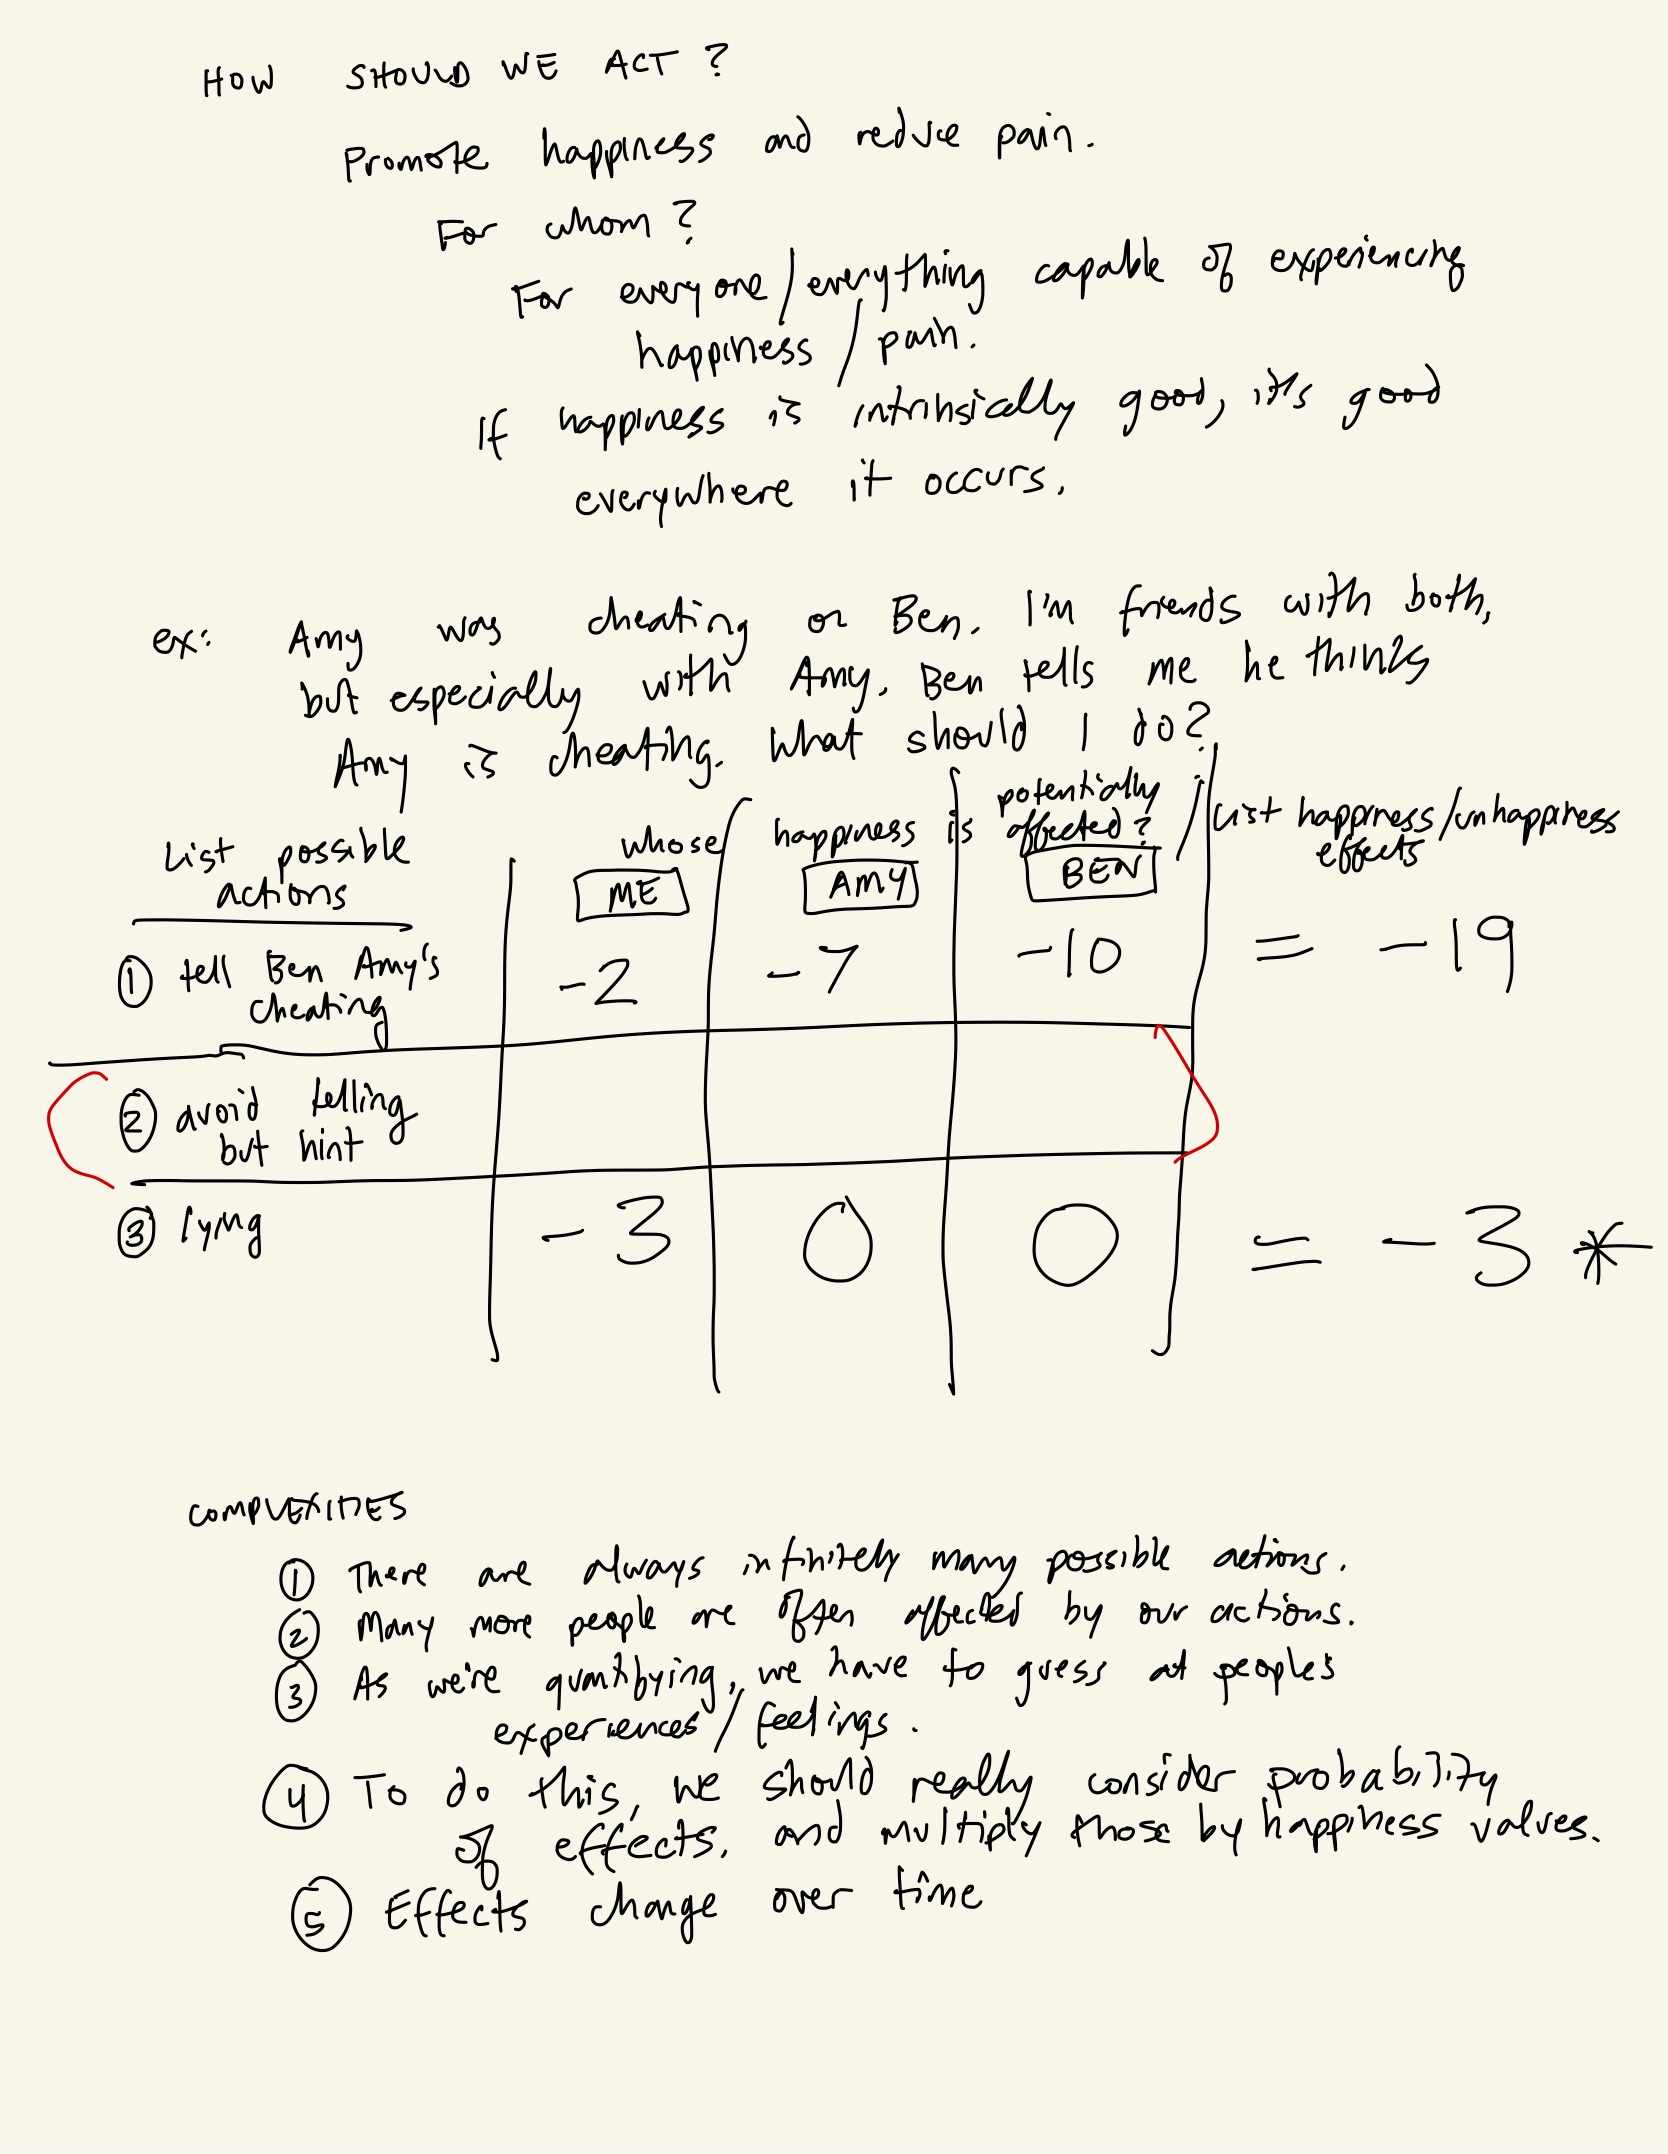 HOW SHOULD WE ACT?
Promote happiness and reduce pain.
For whom?
For everyone/everything capable of experiencing
happiness / pain.
If happiness is intrinsically good, it's good
everywhere it occurs.
ex: Amy was cheating on Ben. I'm friends with both,
but especially with Amy. Ben tells me he thinks
Amy is cheating. What should I do?
List possible
actions
whose happiness is potentially
affected?
/ List happiness/unhappiness
effects
ME AMY BEN
① tell Ben Amy's
cheating
-2 -7 -10 = -19
② avoid telling
but hint
③ lying -3 0 0 = -3 *
COMPLEXITIES
① There are always infinitely many possible actions.
② Many more people are often affected by our actions.
③ As we're quantifying, we have to guess at people's
experiences/feelings.
④ To do this, we should really consider probability
of effects, and multiply those by happiness values.
⑤ Effects change over time